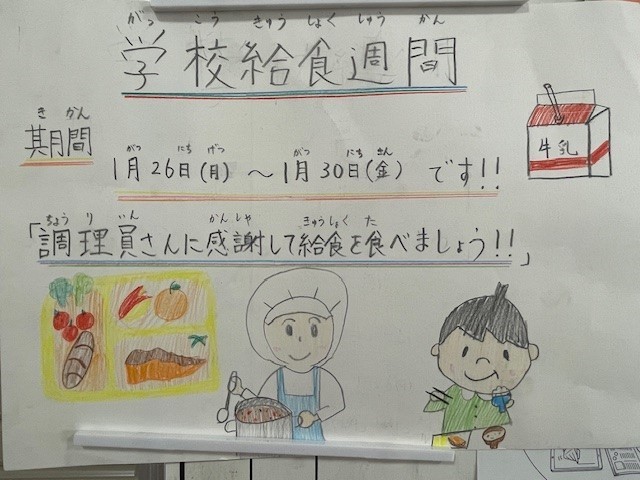 がっ こう きゅう しょく しゅう かん
学校給食週間
き かん
期間
がつ にち げつ がつ にち きん
1月26日(月)～1月30日(金)です!!
牛乳
ちょう り いん かんしゃ きゅうしょく た
「調理員さんに感謝して給食を食べましょう!!」